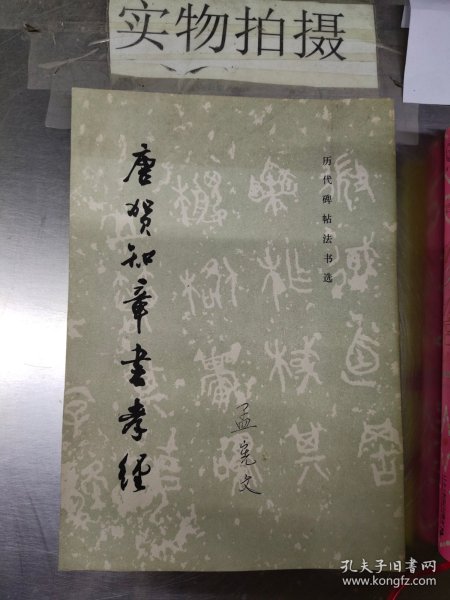 实物拍摄
历代碑帖法书选
唐贺知章书孝经
孟宪文
孔夫子旧书网
www.kongfz.com